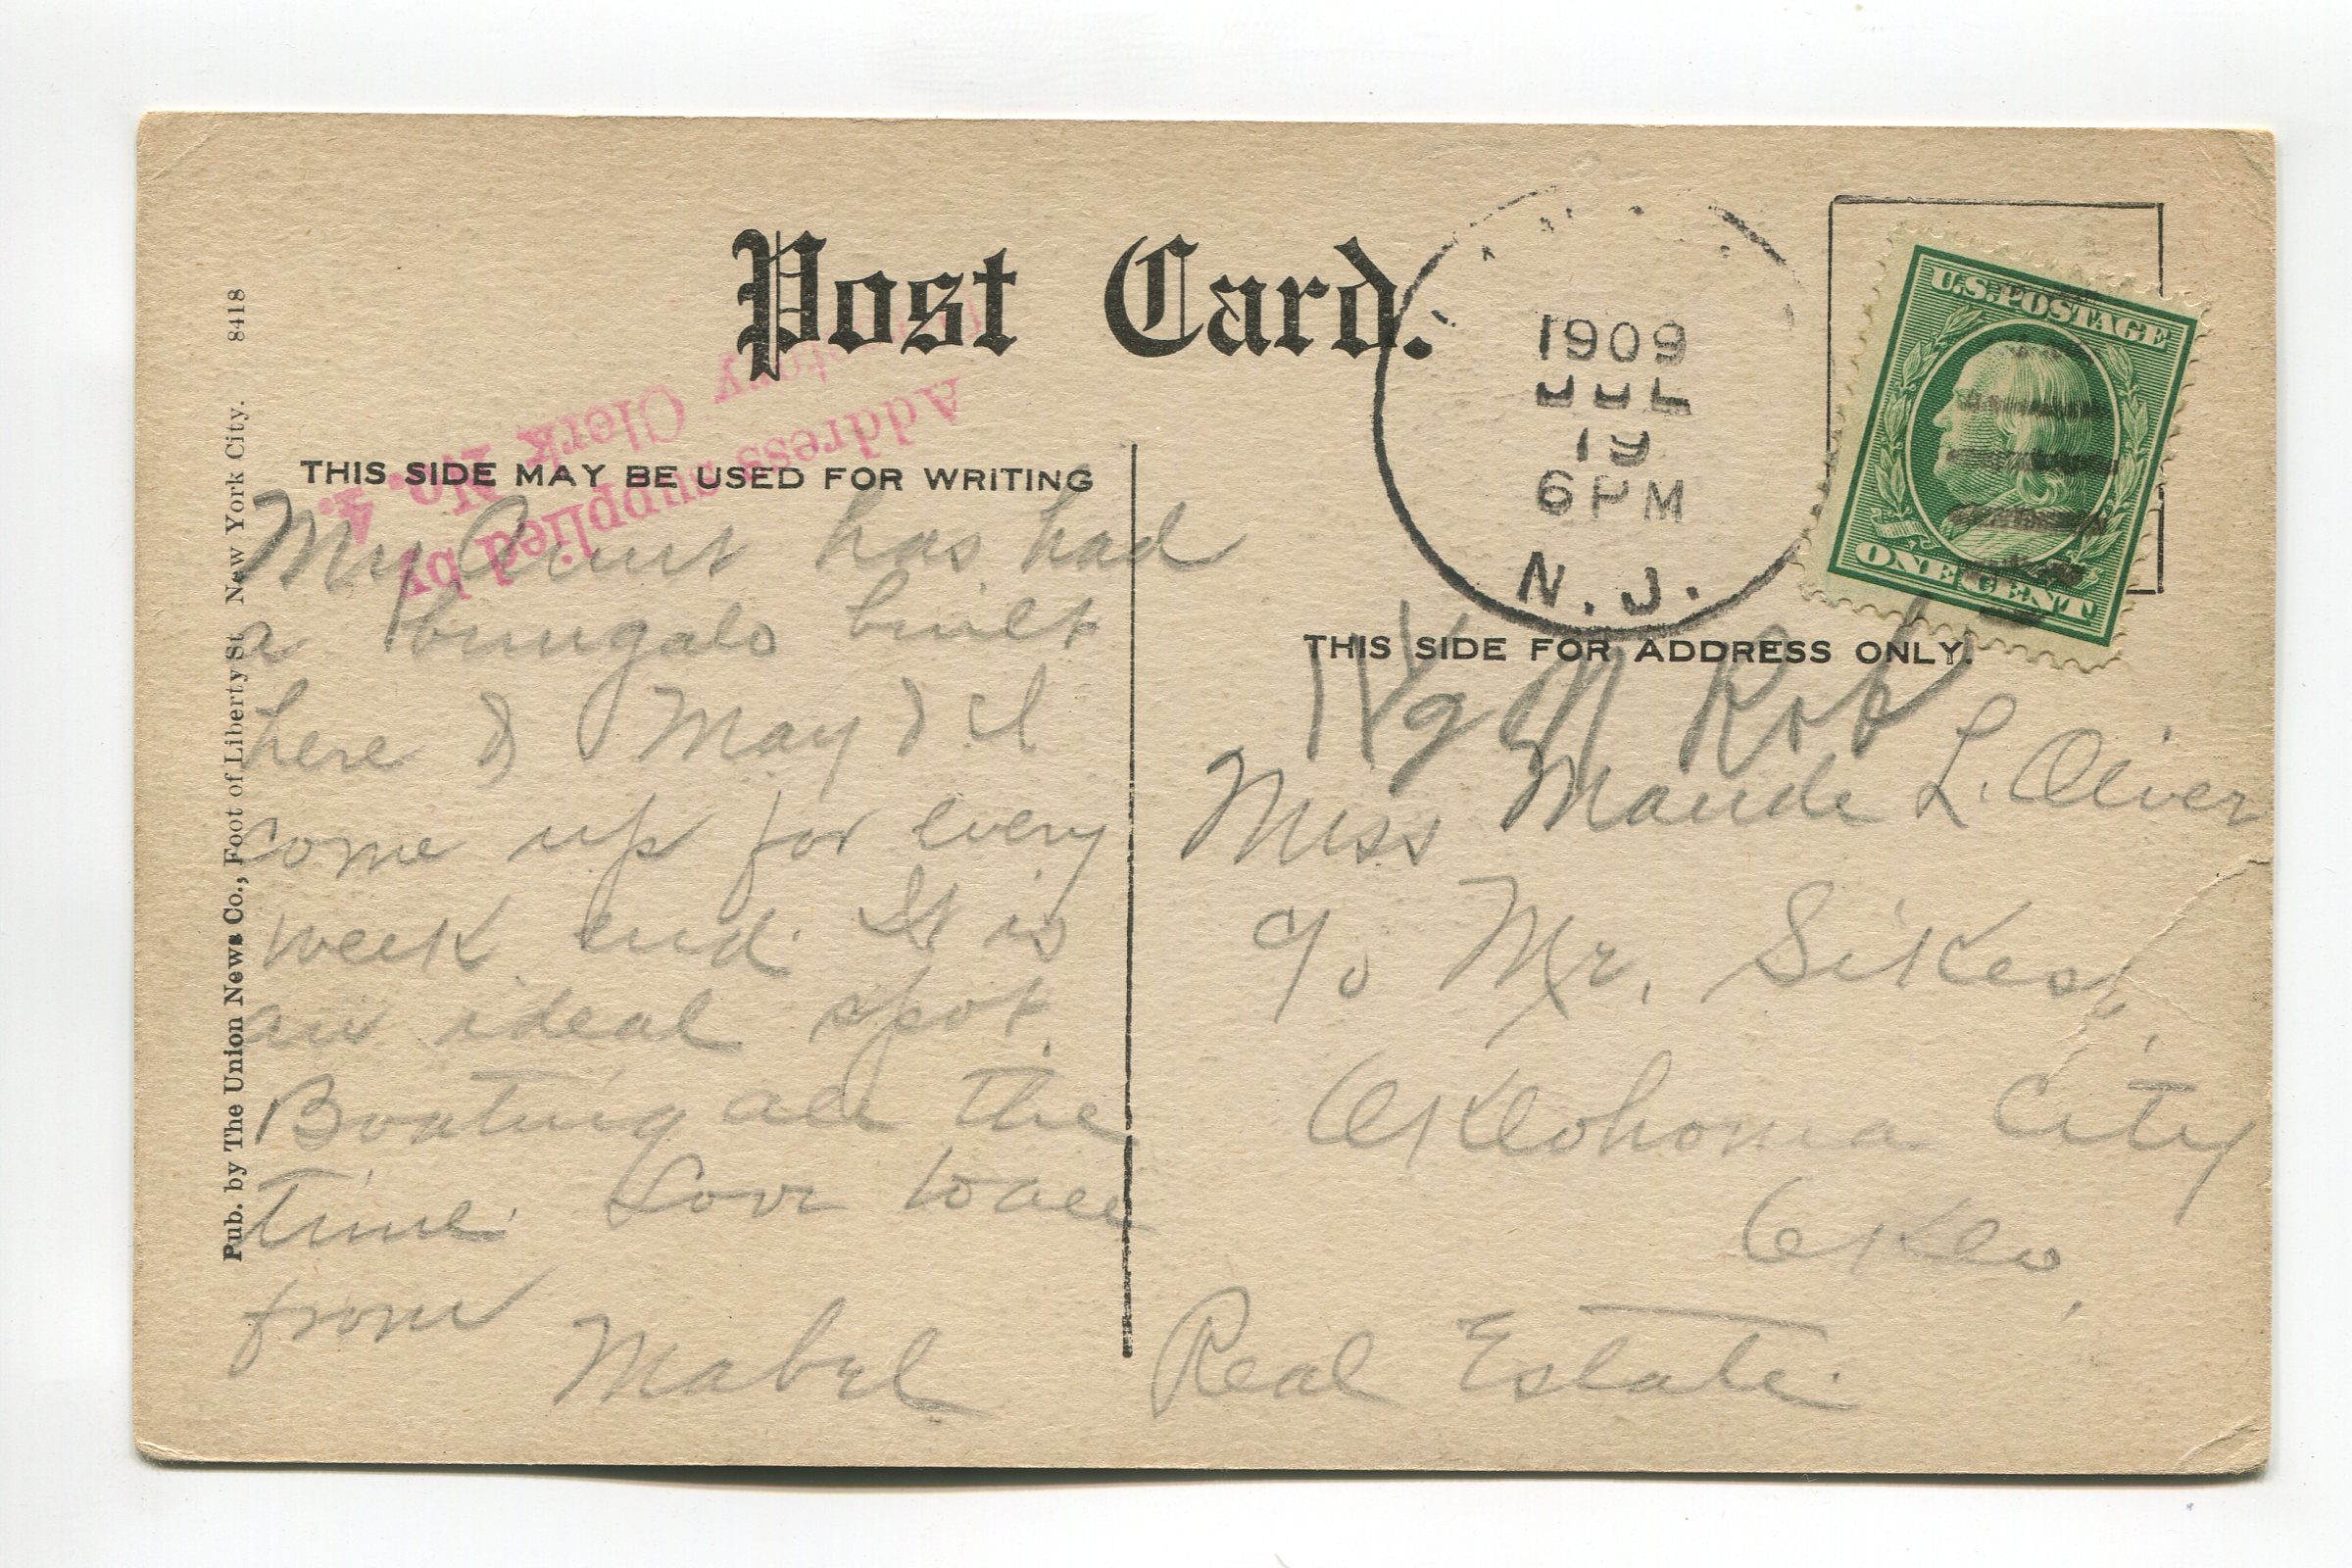 Post Card.
1909
JUL
19
6 PM
N. J.
U.S. POSTAGE
ONE CENT
Address supplied by
Clerk
No. 4.
THIS SIDE MAY BE USED FOR WRITING
My Aunt has had
a bungalo built
here & May & I
come up for every
week end. It is
an ideal spot.
Boating all the
time. Love to all
from
Mabel
THIS SIDE FOR ADDRESS ONLY.
Miss Maude L. Oliver
c/o Mr. Sikes,
Oklohoma City
Oklo,
Real Estate.
Pub. by The Union News Co., Foot of Liberty St New York City. 8418